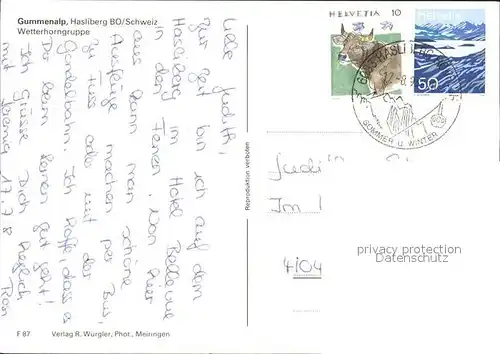 Gummenalp, Hasliberg BO/Schweiz
Wetterhorngruppe
Liebe Judith,
Zur Zeit bin ich auf dem
Hasliberg im Hotel Bellevue
in den Ferien. Von hier
aus kann man schöne
Ausflüge machen per Bus,
zu Fuss oder mit der
Gondelbahn. Ich hoffe, dass es
Dir beim lernen gut geht!
Ich Grüsse Dich herzlich
17.7.8
F 87 Verlag R. Würgler, Phot., Meiringen
Reproduktion verboten
HELVETIA 10
HELVETIA
50
SOMMER U. WINTER
Judi
Im
4104
privacy protection
Datenschutz